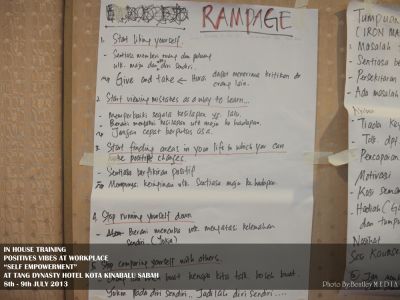 RAMPAGE
1. Start liking yourself
- Sentiasa memberi ruang dan peluang
utk. maju dan diri sendiri.
Give and take ← Harus dapat menerima kritikan dr
orang lain.
2. Start viewing mistakes as a way to learn...
- memperbaiki segala kesilapan yg. lalu.
- Berani mengakui kesilapan utk maju ke hadapan.
Jangan cepat berputus asa.
3. Start finding areas in your life which you can
make positive changes.
Sentiasa berfikiran positif
Mempunyai keinginan utk. Sentiasa maju ke hadapan.
4. Stop running yourself down
Berani mencuba utk mengatasi kelemahan
sendiri (Yakin)
5. Stop comparing yourself with others.
buat kenapa kita tidak boleh buat.
Yakin pada diri sendiri.. Jadilah diri sendiri....
Tumpuan
(IRON MA
Masalah
Sentiasa be
Persekitaran
Ada masalah
Tiada
Tdk. dpt
Pencapaian
Motivasi
Kasi
Hadiah (G
dan
Nasihat
Sesi
IN HOUSE TRAINING
POSITIVES VIBES AT WORKPLACE
"SELF EMPOWERMENT"
AT TANG DYNASTY HOTEL KOTA KINABALU SABAH
8th - 9th JULY 2013
Photo By:Bentley MEDIA